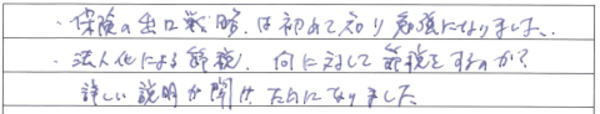 ・保険の出口戦略は初めて知り勉強になりました。
・法人化による節税、何に対して節税をするのか?
詳しい説明が聞けためになりました